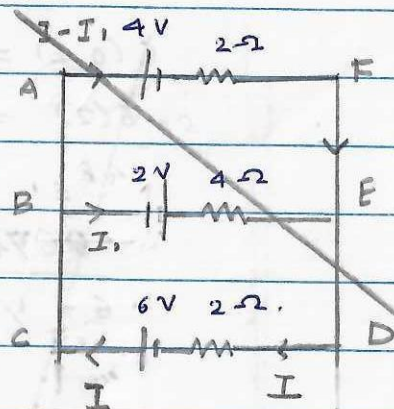 I-I₁ 4V 2Ω
A F
2V 4Ω
B E
I₁
6V 2Ω.
C D
I I